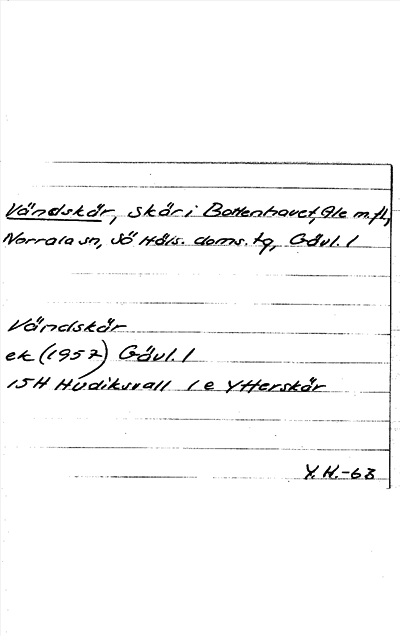 Vändskär, skär i Bottenhavet, Ale m.fl,
Norrala sn, Sö Häls. doms. tg, Gävl. l
Vändskär
ek (1957) Gävl. l
15H Hudiksvall 1e Ytterskär
Y.H.-63